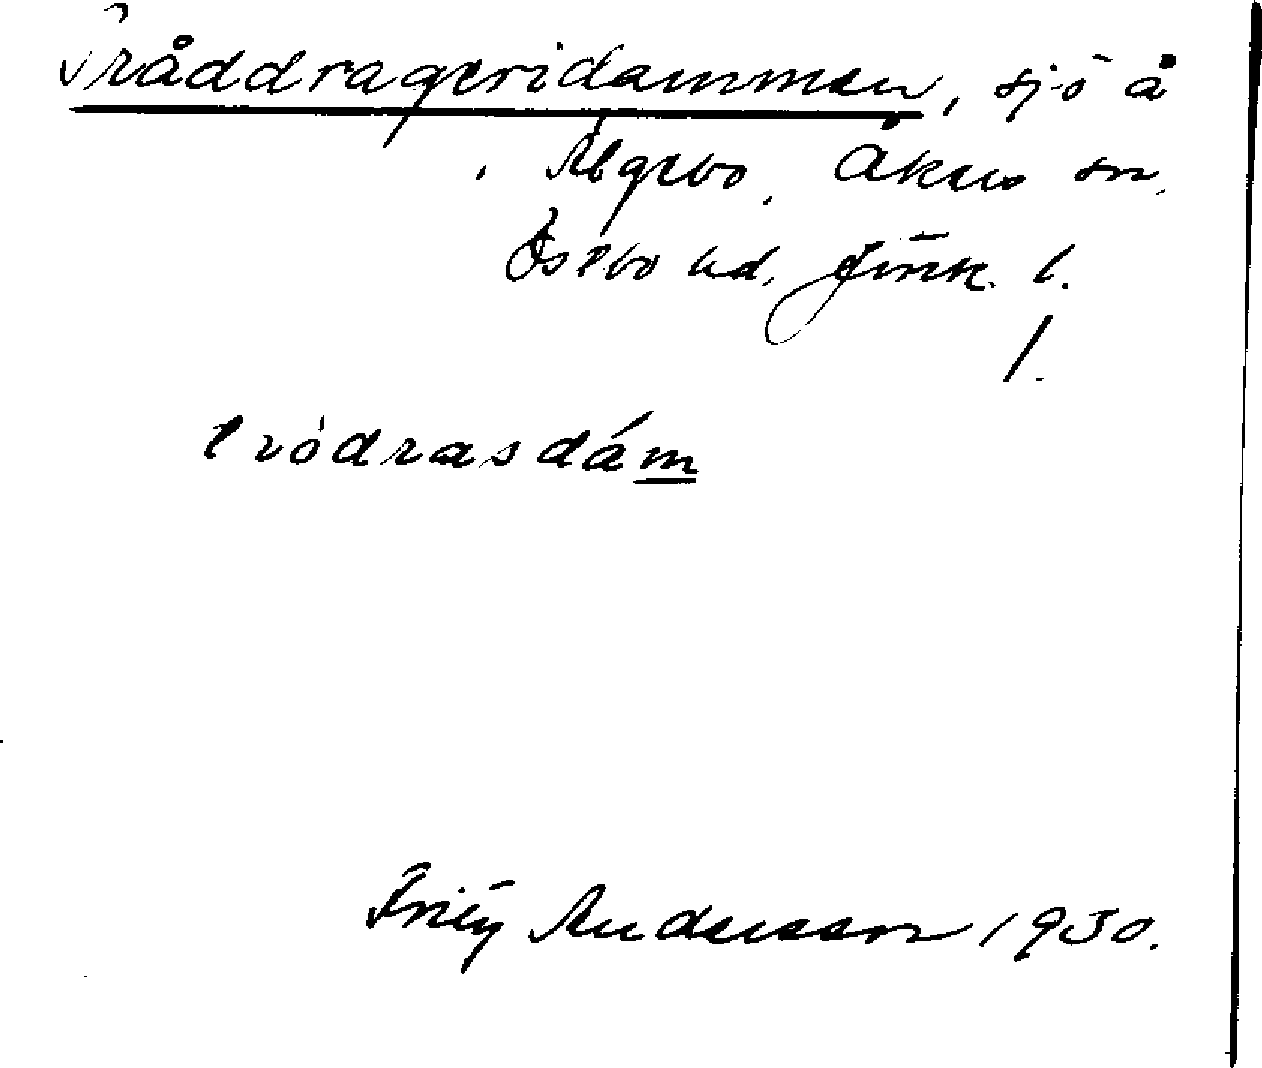 Tråddrageridammen, sjö å
Älgebo, Åkers sn.
Östbo hd. Jönk. l.
1.
tródrasdám
Fritz Andersson 1930.